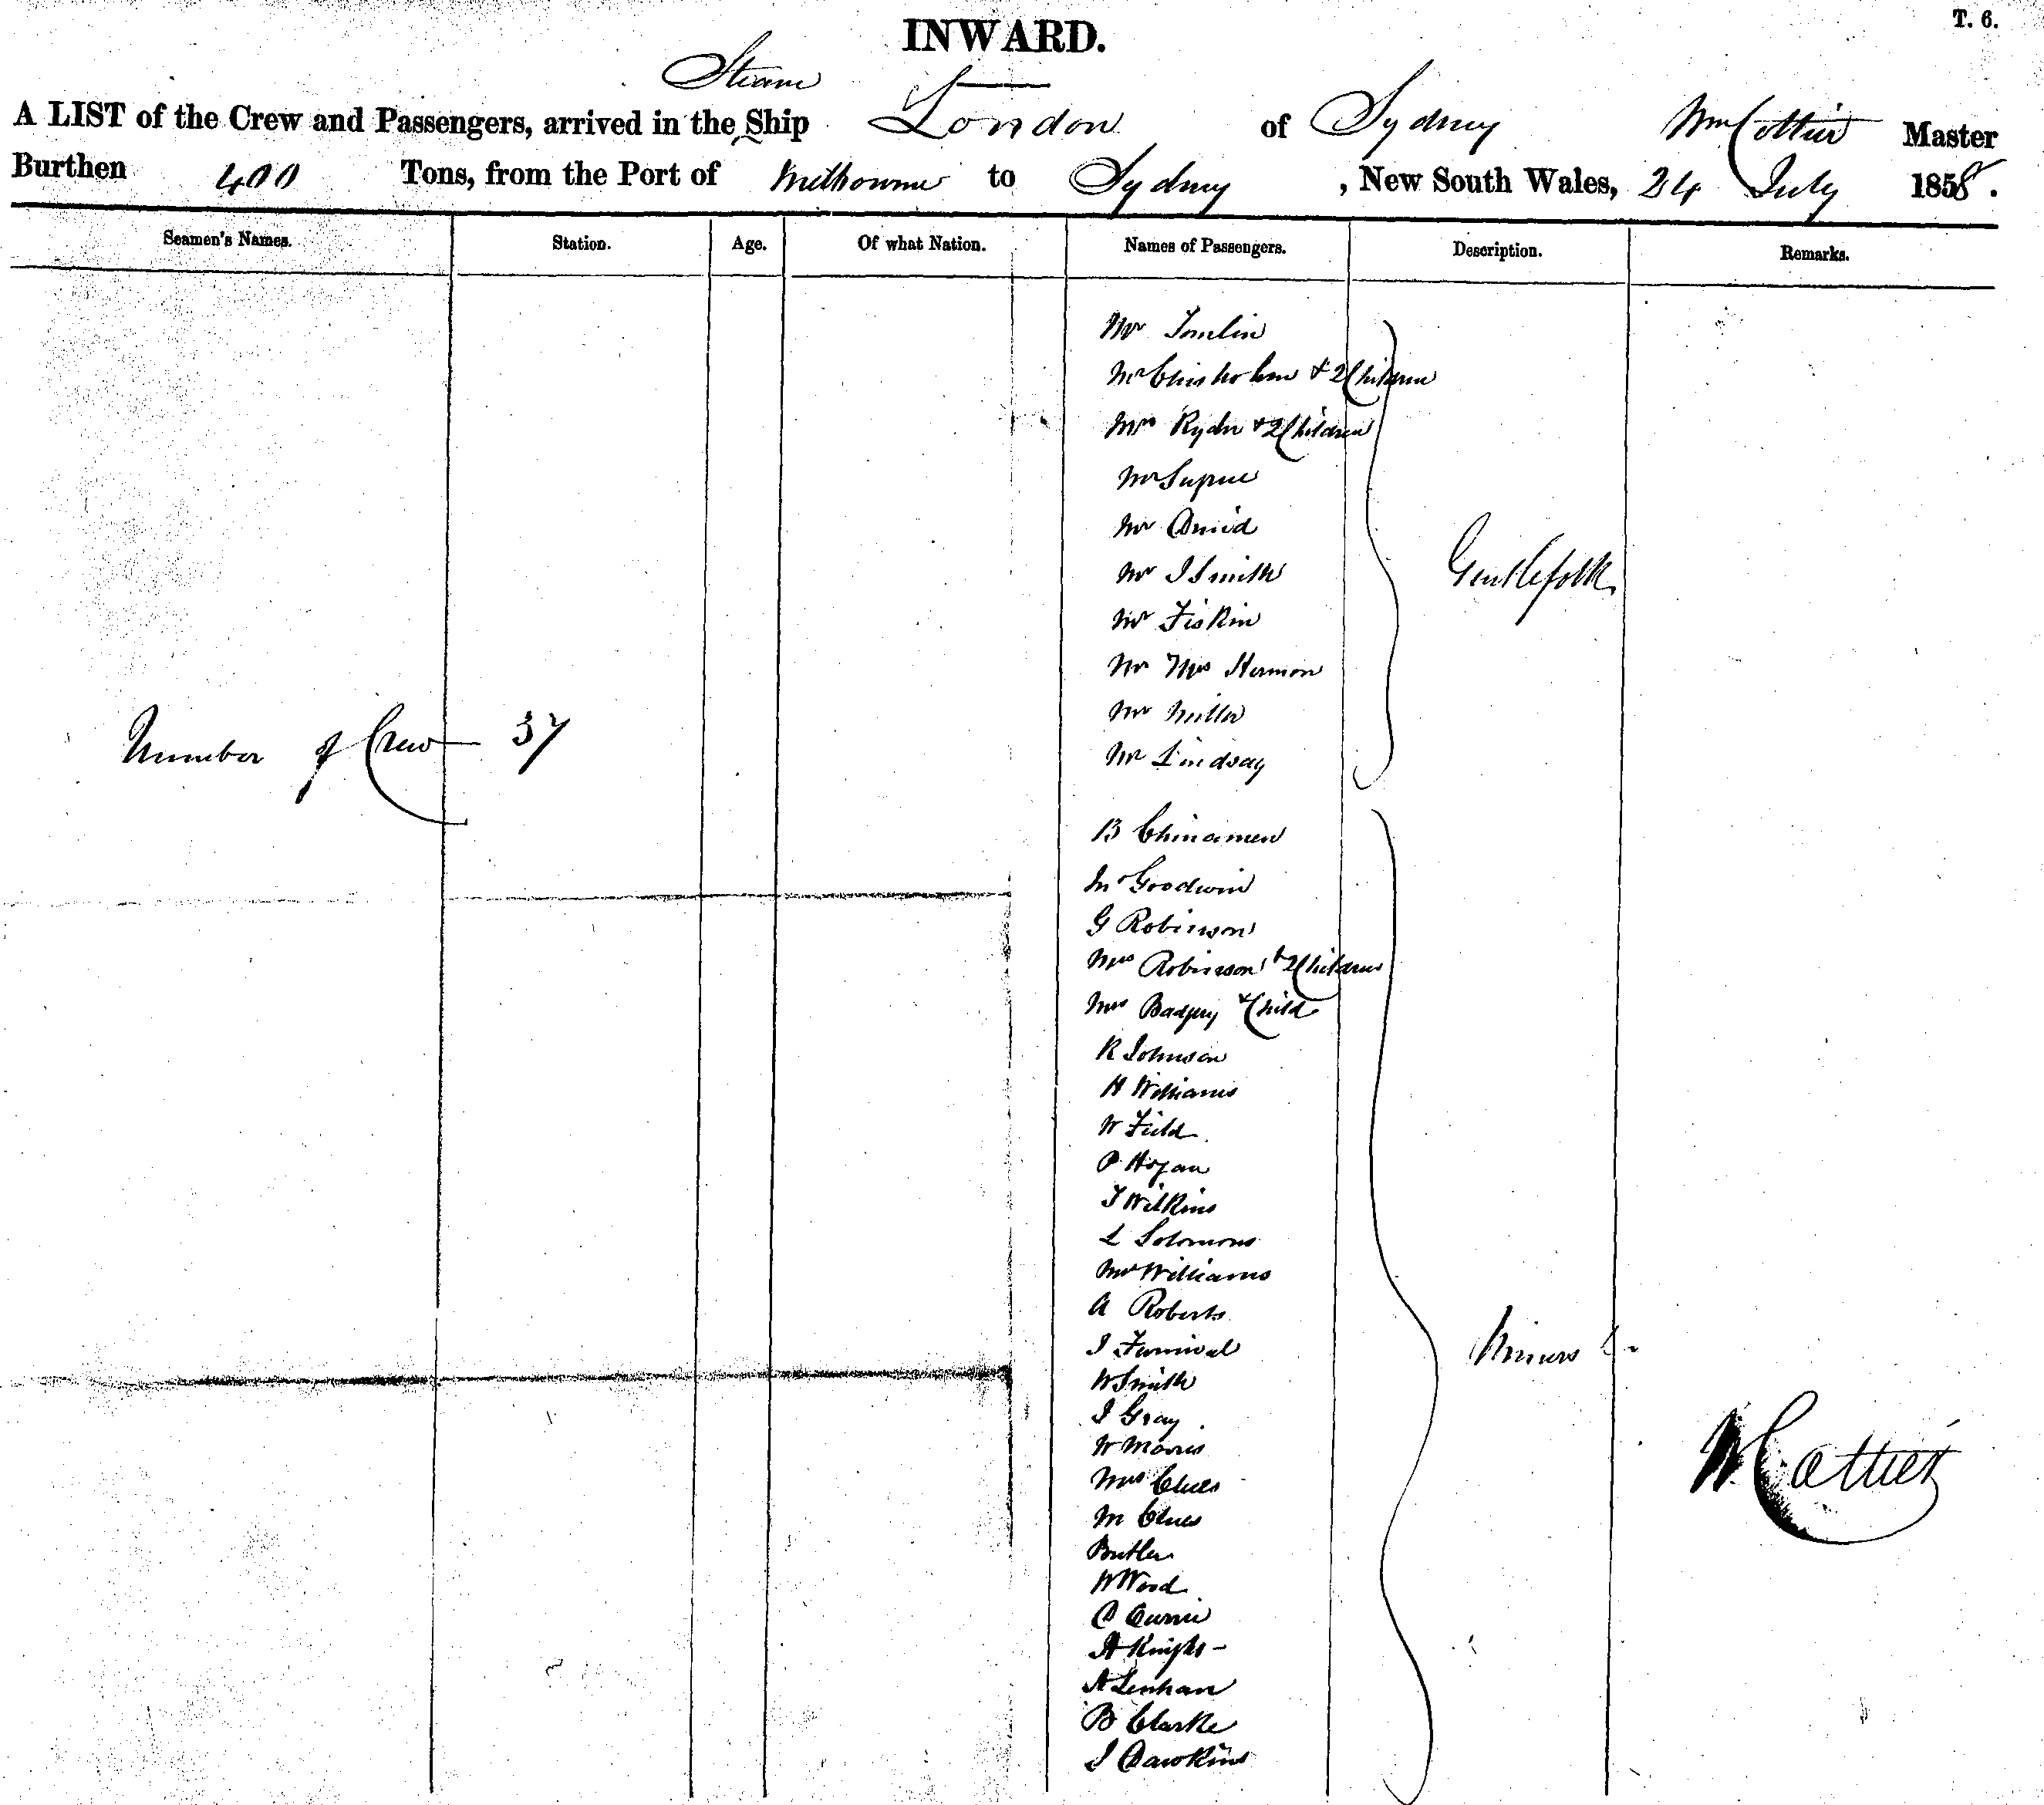 T. 6.
INWARD.
Steam
A LIST of the Crew and Passengers, arrived in the Ship London of Sydney Wm Cottier Master
Burthen 400 Tons, from the Port of Melbourne to Sydney, New South Wales, 24 July 1858.
Seamen's Names. Station. Age. Of what Nation. Names of Passengers. Description. Remarks.
Mr Tomlin
Mr Chisholm & 2 Children
Mrs Ryder & 2 Children
Mr
Mr
Mr J Smith
Gentlefolk
Mr Fiskin
Mr Mrs Hermon
Mr Miller
Number of Crew 37
Mr Lindsay
13 Chinamen
Goodwin
G Robinson
Mrs Robinson & 2 Children
Mrs Badgery & Child
R Johnson
H Williams
W Field
P Hogan
J Wilkins
L Solomons
Williams
A Roberts
J Furnival
Miners &
W Smith
J Gray
W Morris
W Cottier
Mrs Clues
M Clues
Butler
W Wood
C Currie
H Knight
A Lenhan
B Clarke
J Dawkins